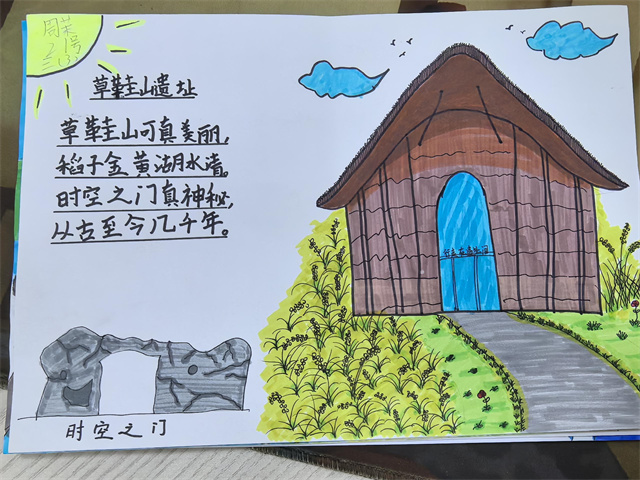 草鞋山遗址
草鞋山可真美丽，
稻子金黄湖水清。
时空之门真神秘，
从古至今几千年。
时空之门